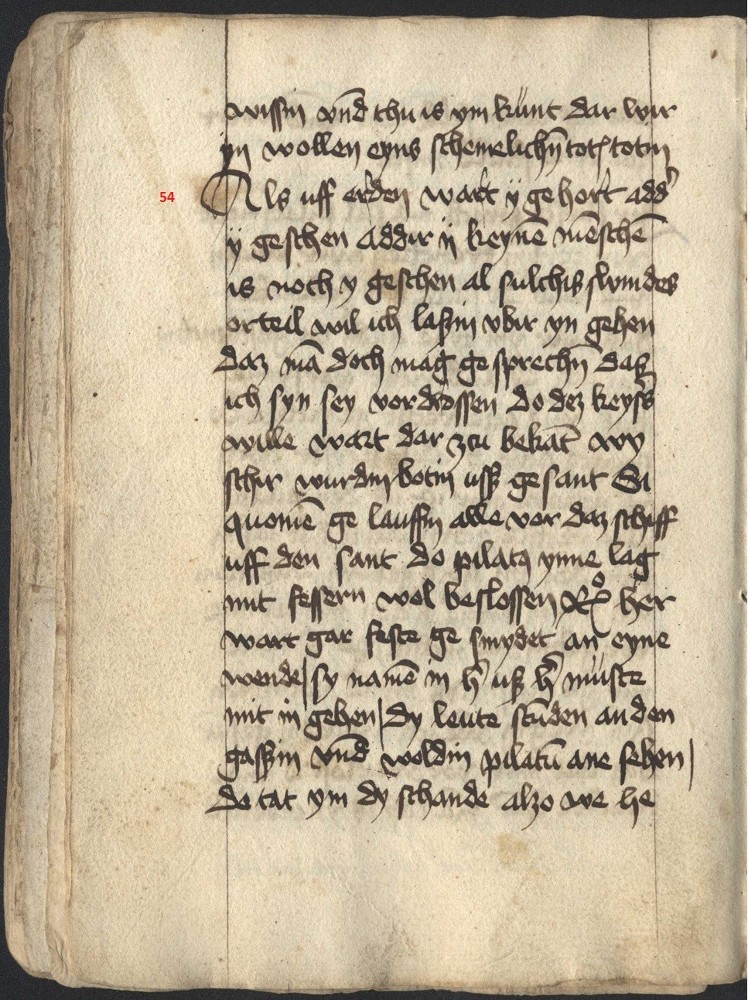 wissin vnd thu is ym kunt dar wir
yn wollen eyns schemelichn totis totin
54
Als uff erden wart y gehort add'
y geschen Addir y keynē mēschē
is noch y geschen al sulchis swindes
orteil wil ich laßin vbir yn gehen
daz mā doch mag ge sprechn daß
ich syn sey vordrossen do dez keys's
wille wart dar zcu bekāt wy
schir wurdin botin usß gesant Si
quomē ge lauffin alle vor daz schiff
uff den sant do pilatq ynne lag
mit fessern wol beslossen her
wart gar feste ge smydet an eyne
wende | sy namē in h' uß h' muste
mit in gehen | dy leute stūden an den
gassin vnd woldin pilatū ane sehen |
do tat ym dy schande alzo we he